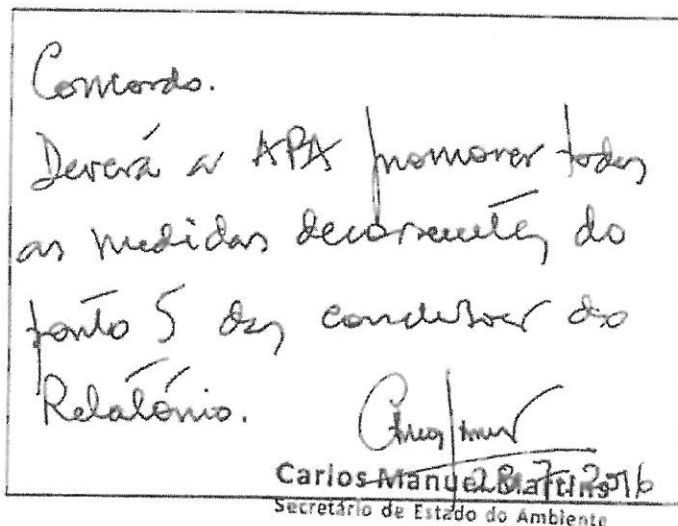 Concordo.
Deverá a APA promover todas
as medidas decorrentes do
ponto 5 das conclusões do
Relatório.
Carlos Manuel Martins
Secretário de Estado do Ambiente